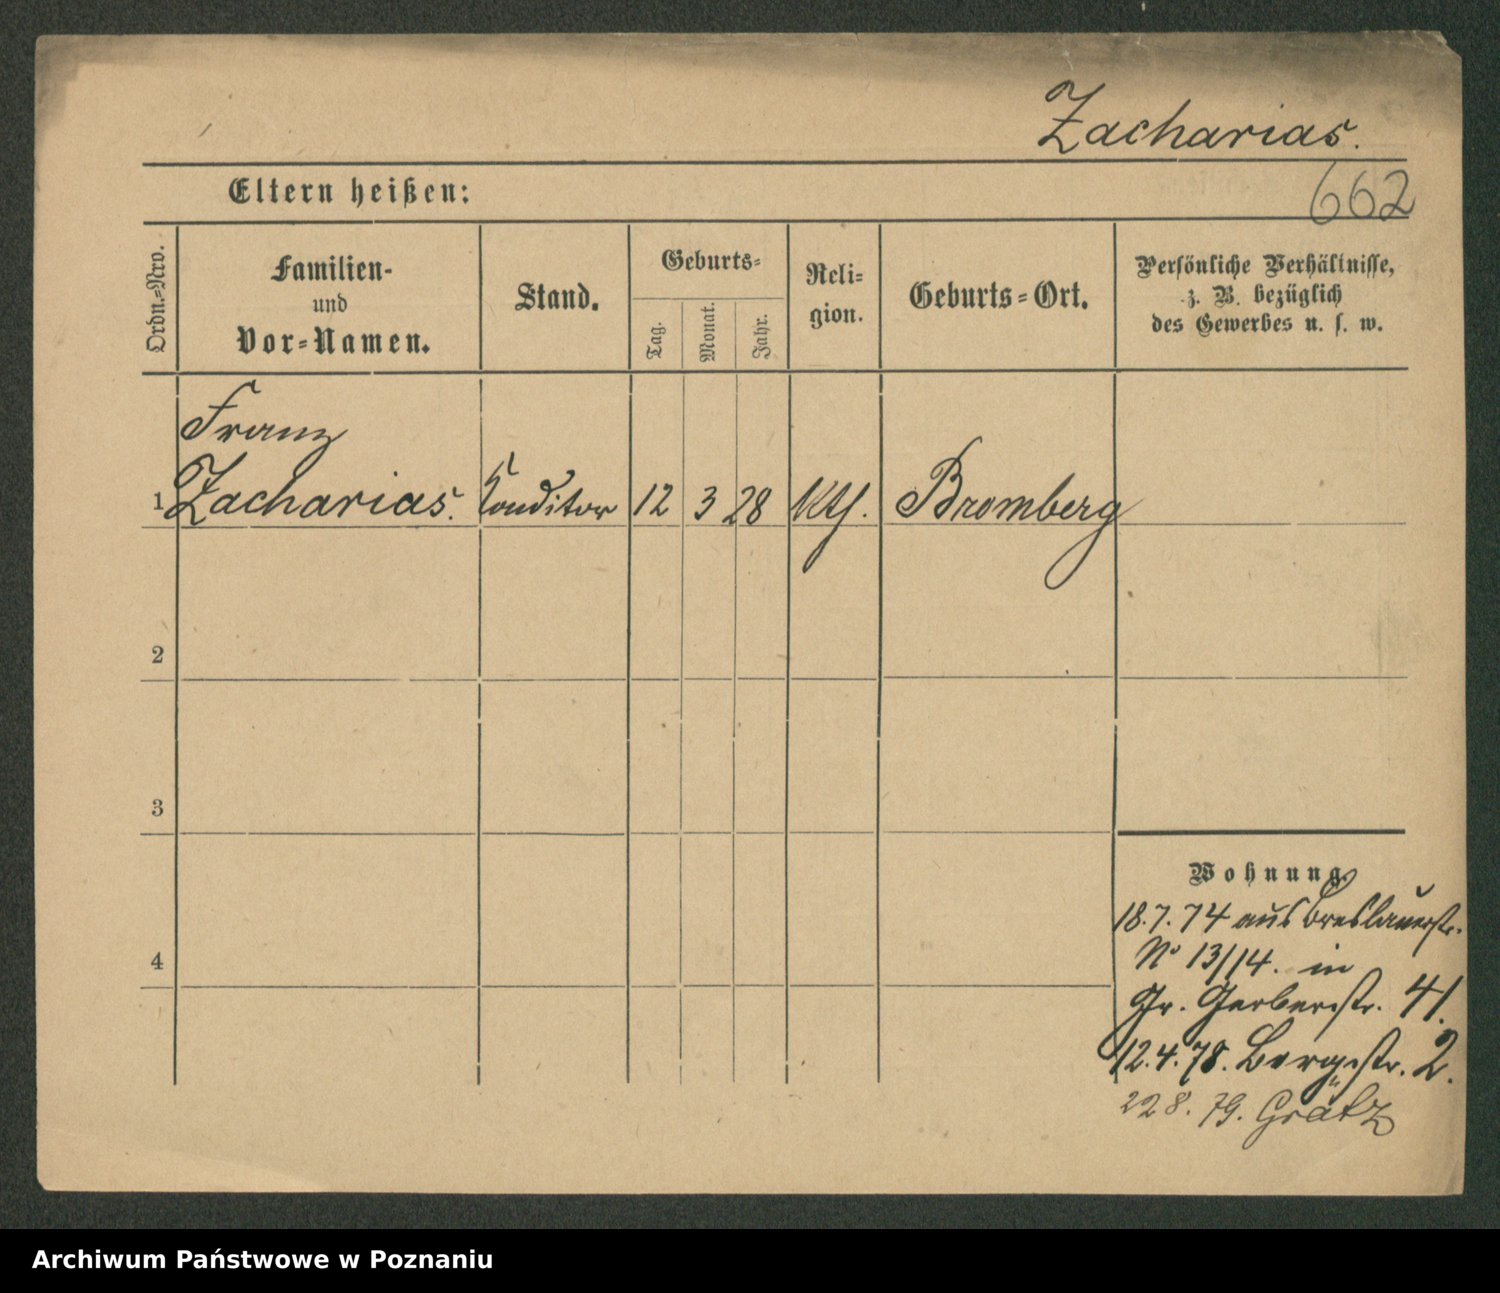 Zacharias.
Eltern heißen:
662
Ordn.=Nro.
Familien-
und
Vor=Namen.
Stand.
Geburts=
Tag.
Monat.
Jahr.
Reli=
gion.
Geburts=Ort.
Persönliche Verhältnisse,
z. B. bezüglich
des Gewerbes u. s. w.
Franz
1 Zacharias. Konditor 12 3 28 Kth. Bromberg
2
3
4
Wohnung.
18.7.74 aus Breslauerstr.
No 13/14. in
Gr. Gerberstr. 41.
12.4.78. Bergstr. 2.
22 8. 79. Grätz
Archiwum Państwowe w Poznaniu